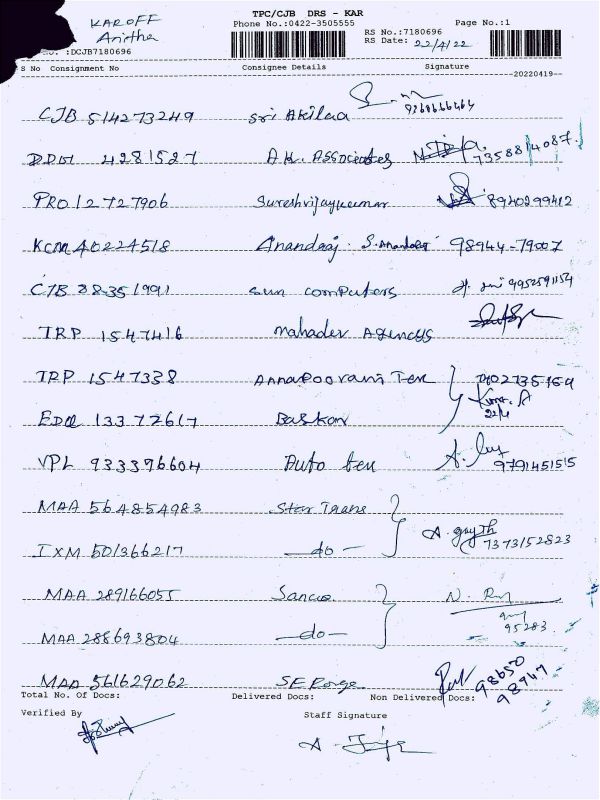 KAROFF
Anitha
TPC/CJB DRS - KAR
Phone No.:0422-3505555
Page No.:1
RS No.:7180696
RS Date: 22/4/22
No. :DCJB7180696
S No Consignment No Consignee Details Signature
--20220419--
CJB 514273249 Sri Akilaa
DDM 4281527 A.K. Associates 7358814087
PRO 12727906 Sureshvijaykumar 8940299412
KCM 40224518 Anandraj 98944-79007
CJB 38351991 Sun computers 9952591154
TRP 1547416 Mahadev Agencys
TRP 1547338 Annapoorani Tex
EDQ 13372617 Baskon
22/4
VPL 933396604 Auto tex 9791451515
MAA 564854983 Star Trans
IXM 501366217 -do- 7373152823
MAA 289166055 Sanco
MAA 288693804 -do- 95283
MAA 561629062 SE Range 98650
98947
Total No. Of Docs: Delivered Docs: Non Delivered Docs:
Verified By Staff Signature